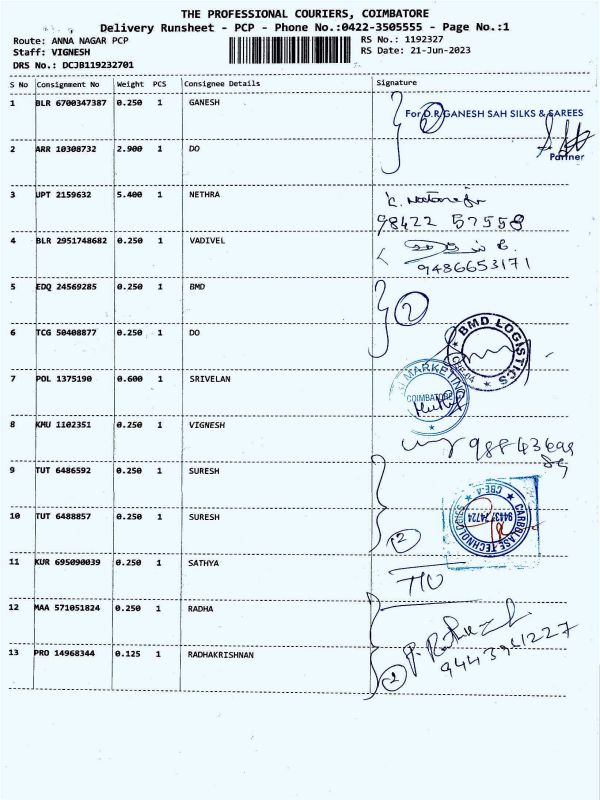 THE PROFESSIONAL COURIERS, COIMBATORE
Delivery Runsheet - PCP - Phone No.:0422-3505555 - Page No.:1
Route: ANNA NAGAR PCP
RS No.: 1192327
Staff: VIGNESH
RS Date: 21-Jun-2023
DRS No.: DCJB119232701
S No Consignment No Weight PCS Consignee Details Signature
1 BLR 6700347387 0.250 1 GANESH
For D.R. GANESH SAH SILKS & SAREES
2
Partner
2 ARR 10308732 2.900 1 DO
3 UPT 2159632 5.400 1 NETHRA
98422 57558
4 BLR 2951748682 0.250 1 VADIVEL
9486653171
5 EDQ 24569285 0.250 1 BMD
2
6 TCG 50408877 0.250 1 DO
BMD LOGISTICS
CBE-04
7 POL 1375190 0.600 1 SRIVELAN
MARKETING
COIMBATORE
8 KMU 1102351 0.250 1 VIGNESH
9 TUT 6486592 0.250 1 SURESH
CARBOLASE TECHNOLOGIES
CBE-4
10 TUT 6488857 0.250 1 SURESH
2
11 KUR 695090039 0.250 1 SATHYA
12 MAA 571051824 0.250 1 RADHA
9443941227
13 PRO 14968344 0.125 1 RADHAKRISHNAN
2